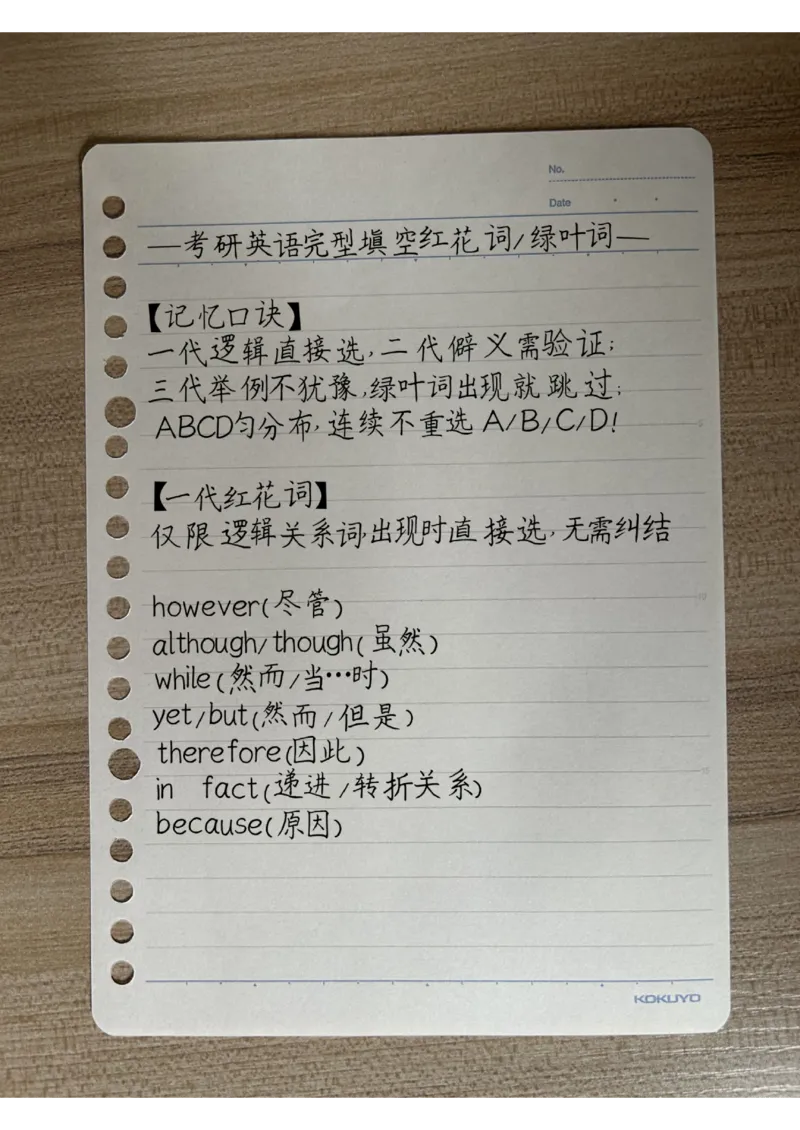 No.
Date
—考研英语完型填空红花词/绿叶词—
【记忆口诀】
一代逻辑直接选,二代僻义需验证;
三代举例不犹豫,绿叶词出现就跳过;
ABCD匀分布,连续不重选 A/B/C/D!
【一代红花词】
仅限逻辑关系词,出现时直接选,无需纠结
however(尽管)
although/though(虽然)
while(然而/当…时)
yet/but(然而/但是)
therefore(因此)
in fact(递进/转折关系)
because(原因)
KOKUYO